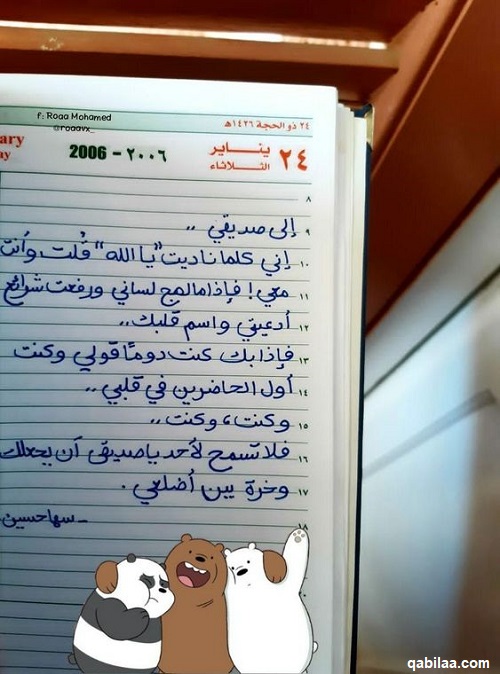 f: Roaa Mohamed
@roaavx_
٢٤ ذو الحجة ١٤٢٦هـ
ary
ay
2006 - ٢٠٠٦
يناير
الثلاثاء
٢٤
٨
٩ إلى صديقي ..
١٠ إني كلما ناديت "يا الله" قُلت وأنت
١١ معي! فإذا ما لهج لساني ورفعت شرائع
١٢ أدعيتي واسم قلبك..
١٣ فإذا بك كنت دومًا قولي وكنت
١٤ أول الحاضرين في قلبي ..
١٥ وكنت، وكنت..
١٦ فلا تسمح لأحد يا صديقي أن يجعلك
١٧ وخزة بين أضلعي .
- سها حسين
١٨
qabilaa.com